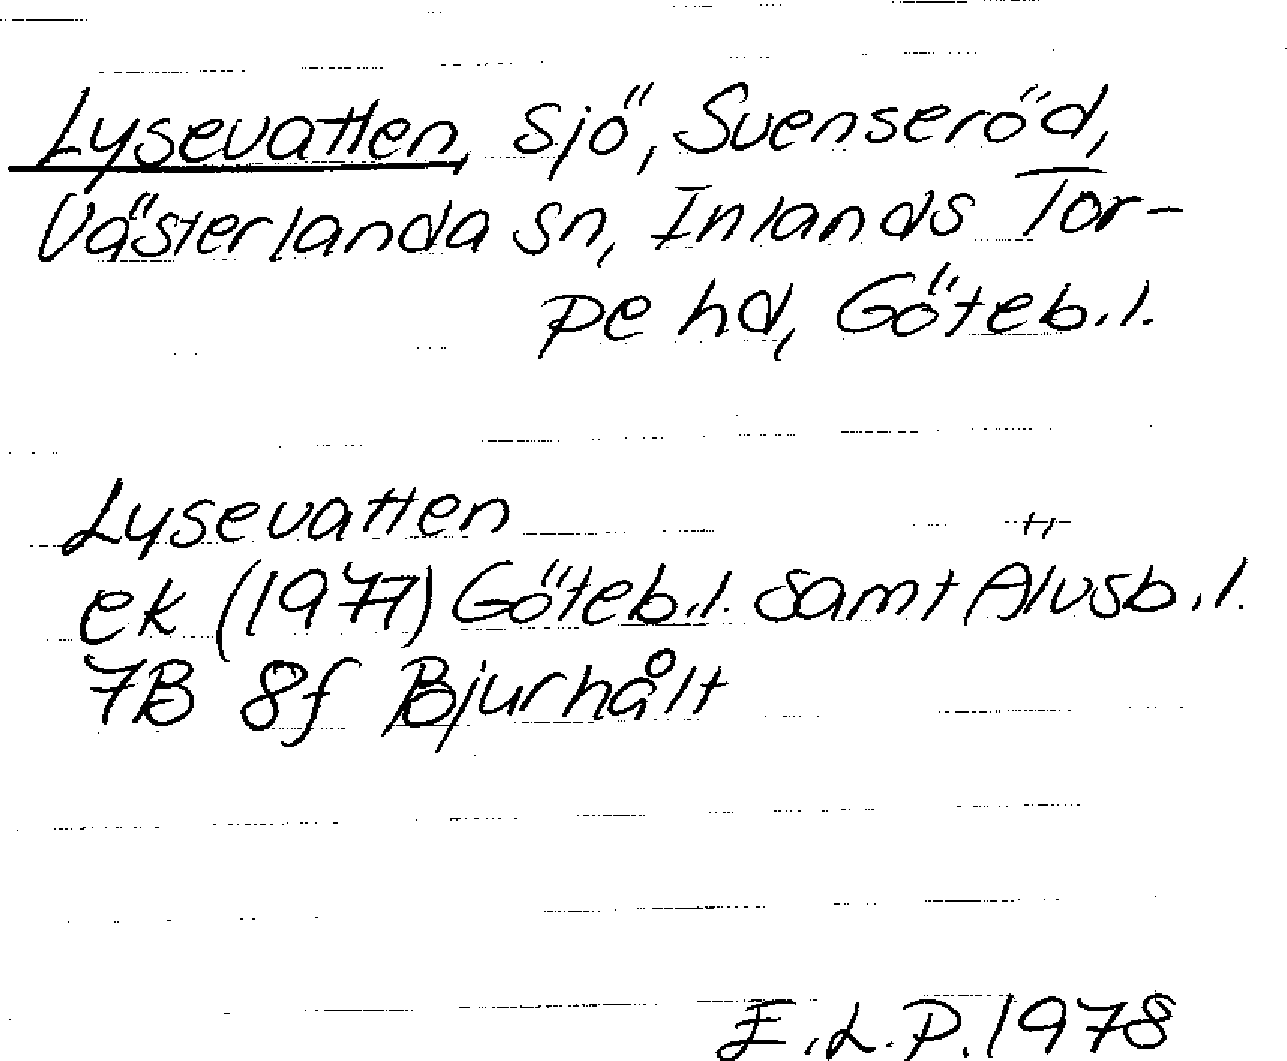 Lysevatten, sjö, Svenseröd,
Västerlanda sn, Inlands Tor-
pe hd, Göteb.l.
Lysevatten
ek (1977) Göteb.l. samt Älvsb.l.
7B 8f Bjurhålt
E.L.P. 1978